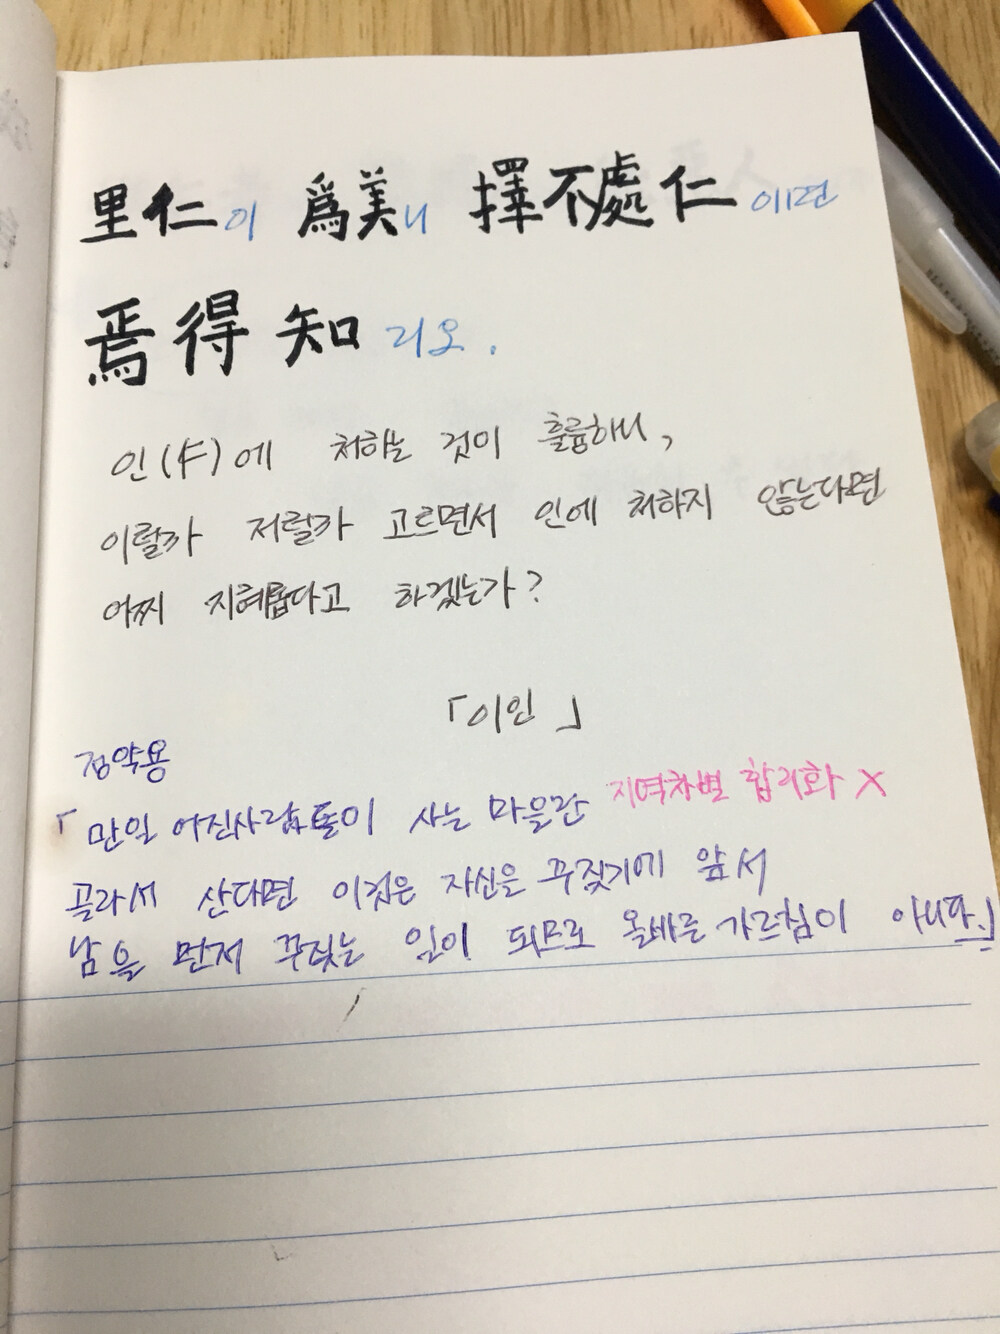 里仁이 爲美니 擇不處仁이면
焉得知리오.
인(仁)에 처하는 것이 훌륭하니,
이럴까 저럴까 고르면서 인에 처하지 않는다면
어찌 지혜롭다고 하겠는가?
「이인」
정약용
지역차별 합리화 X
「만일 어진사람들이 사는 마을만
골라서 산다면 이것은 자신을 꾸짖기에 앞서
남을 먼저 꾸짖는 일이 되므로 올바른 가르침이 아니다.」